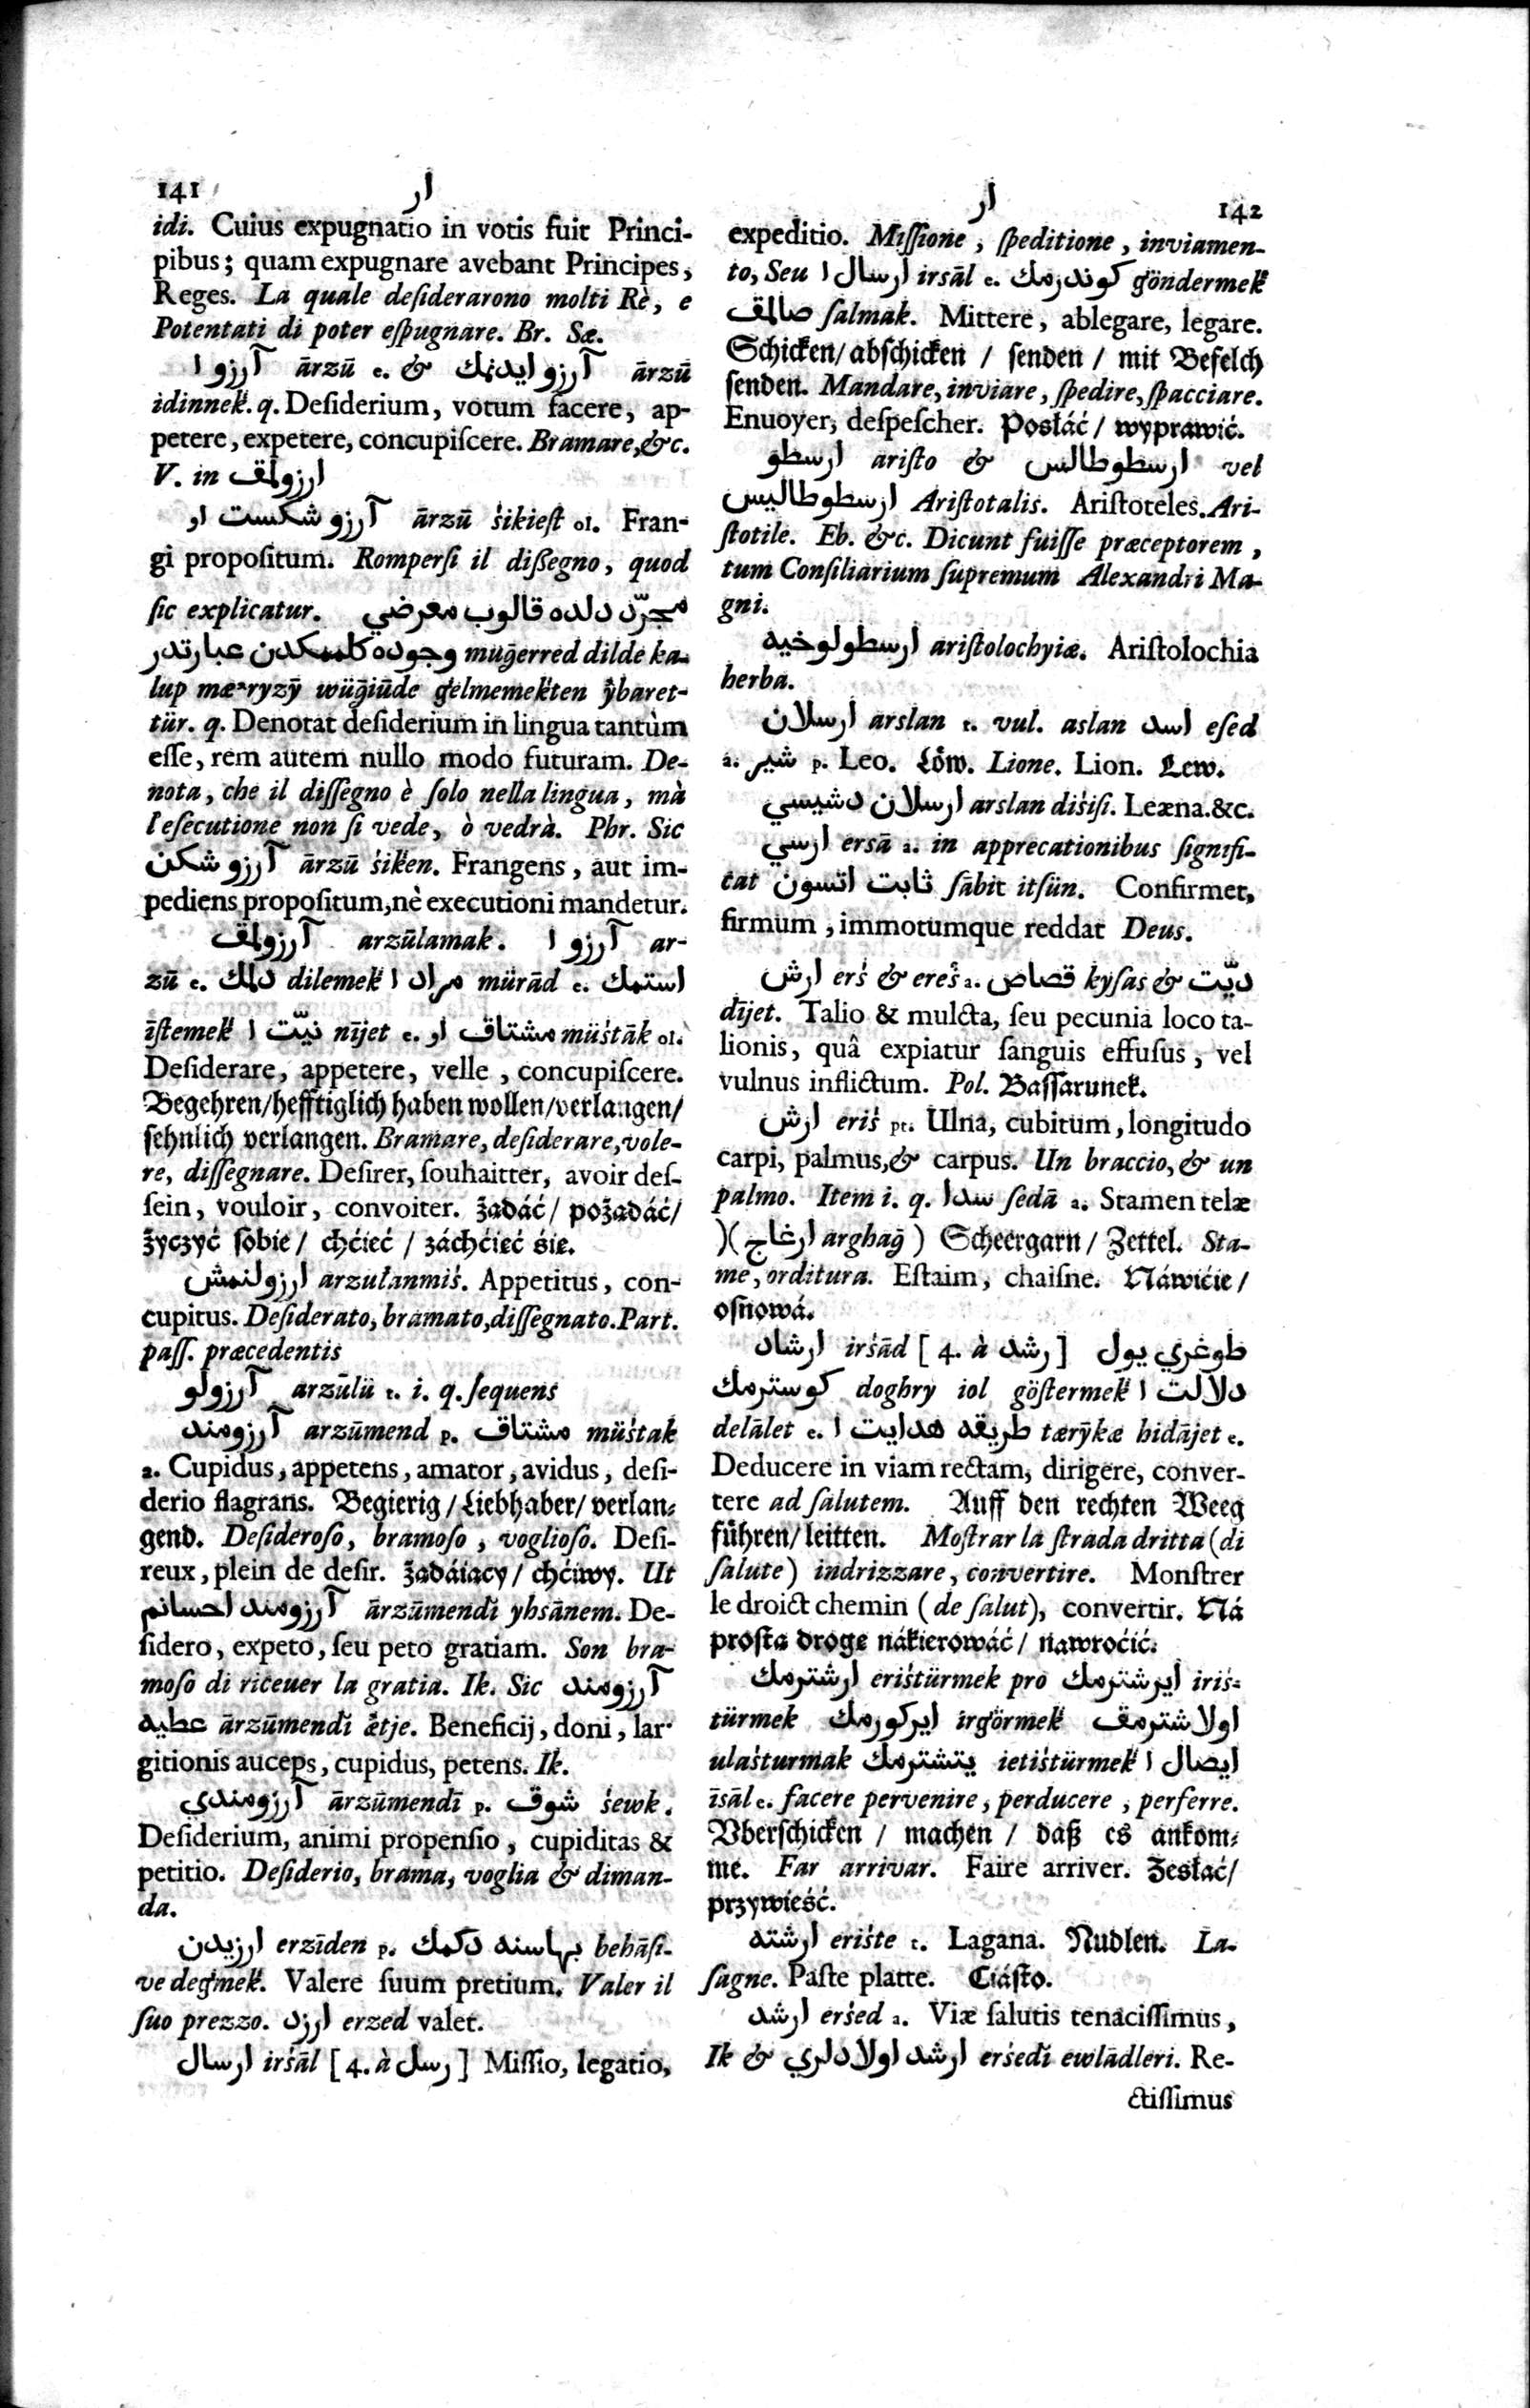 141
ار
idi. Cuius expugnatio in votis fuit Princi-
pibus; quam expugnare avebant Principes,
Reges. La quale deſiderarono molti Rè, e
Potentati di poter eſpugnare. Br. Sæ.
آرزو ا ārzū e. & آرزو ايدنمك ārzū
idinnek̈. q. Deſiderium, votum facere, ap-
petere, expetere, concupiſcere. Bramare, &c.
V. in ارزولمق
آرزو شكست او ārzū ṡikieſt ol. Fran-
gi propoſitum. Romperſi il dißegno, quod
ſic explicatur. مجرّد دلده قالوب معرضي
وجوده كلممكدن عبارتدر muḡerred dilde ka-
lup mæʾryzȳ wüḡiūde g̈elmemek̈ten ŷbaret-
tür. q. Denotat deſiderium in lingua tantùm
eſſe, rem autem nullo modo futuram. De-
nota, che il diſſegno è ſolo nella lingua, mà
l'eſecutione non ſi vede, ò vedrà. Phr. Sic
آرزو شكن ārzū ṡik̈en. Frangens, aut im-
pediens propoſitum, nè executioni mandetur.
آرزولمق arzūlamak. آرزو ا ar-
zū e. دلمك dilemek̈ مراد ا mürād e. استمك
īſtemek̈ نيّت ا nījet e. مشتاق او müṡtāk ol.
Deſiderare, appetere, velle, concupiſcere.
Begehren/ hefftiglich haben wollen/ verlangen/
ſehnlich verlangen. Bramare, deſiderare, vole-
re, diſſegnare. Deſirer, ſouhaitter, avoir deſ-
ſein, vouloir, convoiter. żądáć/ pożądáć/
życzyć ſobie/ chćieć/ záchćieć śię.
ارزولنمش arzulanmiṡ. Appetitus, con-
cupitus. Deſiderato, bramato, diſſegnato. Part.
paſſ. præcedentis
آرزولو arzūlü t. i. q. ſequens
آرزومند arzūmend p. مشتاق müṡtak
a. Cupidus, appetens, amator, avidus, deſi-
derio flagrans. Begierig/ Liebhaber/ verlan-
gend. Deſideroſo, bramoſo, voglioſo. Deſi-
reux, plein de deſir. żądáiący/ chćiwy. Ut
آرزومند احسانم ārzūmendi yhsānem. De-
ſidero, expeto, ſeu peto gratiam. Son bra-
moſo di riceuer la gratia. Ik. Sic آرزومند
عطيه ārzūmendi ætje. Beneficij, doni, lar-
gitionis auceps, cupidus, petens. Ik.
آرزومندي ārzūmendī p. شوق ṡewk.
Deſiderium, animi propenſio, cupiditas &
petitio. Deſiderio, brama, voglia & diman-
da.
ارزيدن erzīden p. بهاسنه دكمك behāſi-
ve deg̈mek̈. Valere ſuum pretium. Valer il
ſuo prezzo. ارزد erzed valet.
ارسال irṡāl [ 4. à رسل ] Miſſio, legatio,
ار
142
expeditio. Miſſione, ſpeditione, inviamen-
to, Seu ارسال ا irsāl e. كوندرمك g̈öndermek̈
صالمق ſalmak. Mittere, ablegare, legare.
Schicken/ abſchicken / ſenden / mit Befelch
ſenden. Mandare, inviare, ſpedire, ſpacciare.
Enuoyer, deſpeſcher. Posłáć / wyprawić.
ارسطو ariſto & ارسطوطالس vel
ارسطوطاليس Ariſtotalis. Ariſtoteles. Ari-
ſtotile. Eb. &c. Dicunt fuiſſe præceptorem,
tum Conſiliarium ſupremum Alexandri Ma-
gni.
ارسطولوخيه ariſtolochyiæ. Ariſtolochia
herba.
ارسلان arslan t. vul. aslan اسد eſed
a. شير p. Leo. Löw. Lione. Lion. Lew.
ارسلان دشيسي arslan diṡiſi. Leæna. &c.
ارسي ersā a. in apprecationibus ſignifi-
cat ثابت اتسون ſābit itſün. Confirmet,
firmum, immotumque reddat Deus.
ارش erṡ & ereṡ a. قصاص kyſas & ديّت
dījet. Talio & mulcta, ſeu pecunia loco ta-
lionis, quâ expiatur ſanguis effuſus, vel
vulnus inflictum. Pol. Baſſarunek.
ارش eriṡ pt. Ulna, cubitum, longitudo
carpi, palmus, & carpus. Un braccio, & un
palmo. Item i. q. سدا ſedā a. Stamen telæ
)( ارغاج arghaḡ ) Scheergarn/ Zettel. Sta-
me, orditura. Eſtaim, chaiſne. Náwićie /
oſnowá.
ارشاد irṡād [ 4. à رشد ] طوغري يول
كوسترمك doghry iol göſtermek̈ دلالت ا
delālet e. طريقه هدايت ا tærȳkæ hidājet e.
Deducere in viam rectam, dirigere, conver-
tere ad ſalutem. Auff den rechten Weeg
führen/ leitten. Moſtrar la ſtrada dritta (di
ſalute) indrizzare, convertire. Monſtrer
le droict chemin (de ſalut), convertir. Ná
proſta drogę nákierowáć/ nawroćić.
ارشترمك eriṡtürmek pro ايرشترمك iriṡ-
türmek ايركورمك irg̈örmek̈ اولاشترمق
ulaṡturmak يتشترمك ietiṡtürmek̈ ايصال ا
īsāl e. facere pervenire, perducere, perferre.
Vberſchicken / machen / daß es ankom-
me. Far arrivar. Faire arriver. Zesłać/
przywieść.
ارشته eriṡte t. Lagana. Nudlen. La-
ſagne. Paſte platte. Ciáſto.
ارشد erṡed a. Viæ ſalutis tenaciſſimus,
Ik & ارشد اولادلري erṡedi ewlādleri. Re-
ctiſſimus